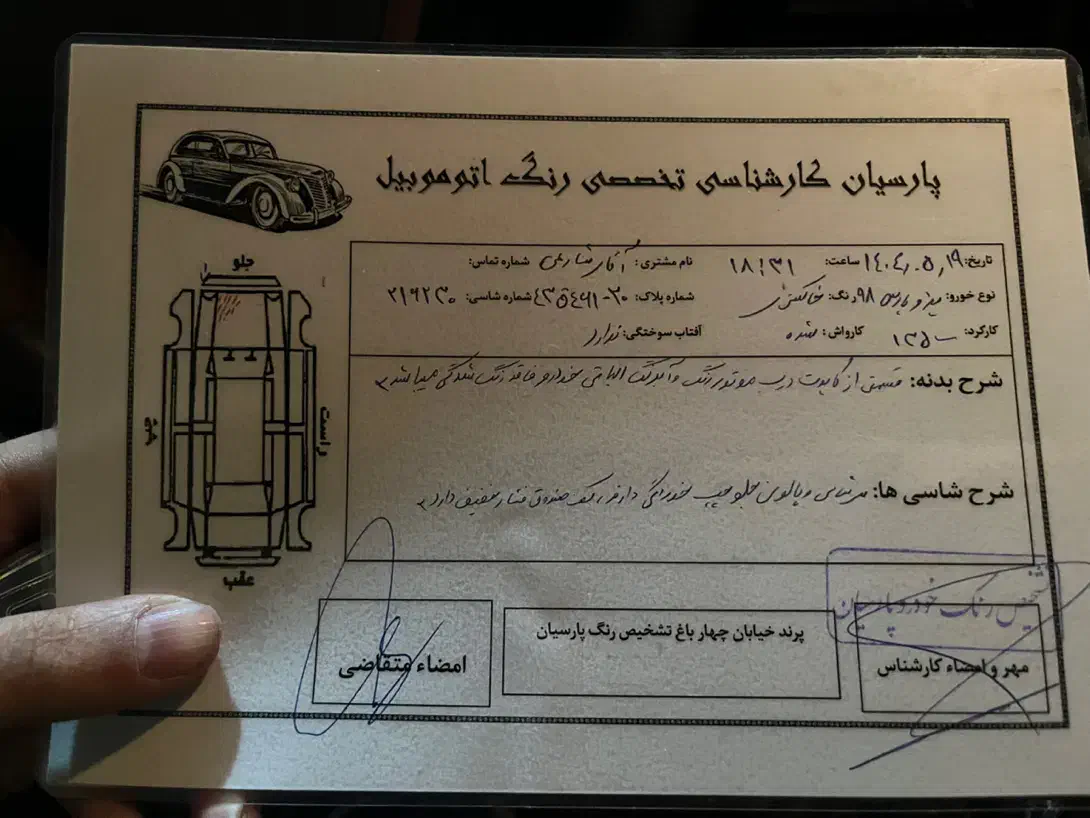 پارسیان کارشناسی تخصصی رنگ اتوموبیل
تاریخ: ۱۴۰۴٫۰۵٫۱۹ ساعت: ۱۸:۳۱ نام مشتری: آقای شماره تماس:
نوع خورو: پژو پارس ۹۸ رنگ: خاکستری شماره پلاک: شماره شاسی: ۲۱۶۲۳۰
کارکرد: ۱۳۵۰۰۰ کارواش: شده آفتاب سوختگی: ندارد
شرح بدنه: قسمتی از کاپوت درب موتور رنگ و آمپرنگ الباقی خودرو فاقد رنگ شدگی میباشد
شرح شاسی ها: سرشاسی و پالونی جلو چپ خوردگی دارد، کف صندوق فشار خفیف دارد
جلو
چپ
راست
عقب
تشخیص رنگ خودرو پارسیان
مهر و امضاء کارشناس
پرند خیابان چهار باغ تشخیص رنگ پارسیان
امضاء متقاضی